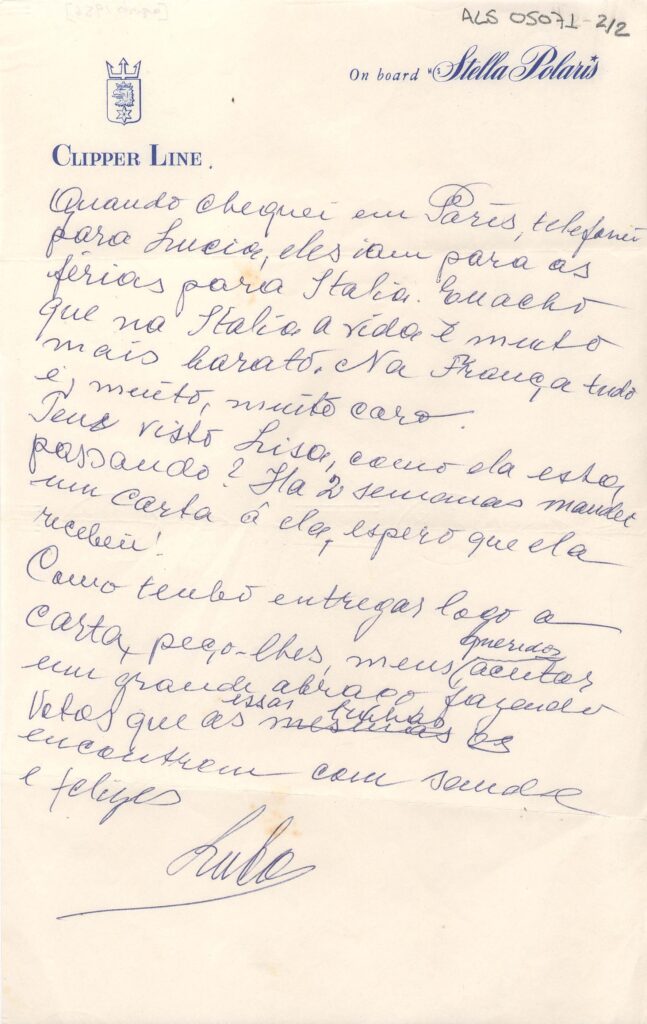 ALS 05071-2/2
On board M/S Stella Polaris
CLIPPER LINE.
Quando cheguei em Paris, telefonei
para Lucia, eles iam para as
férias para Italia. Eu acho
que na Italia a vida é muito
mais barato. Na França tudo
é, muito, muito caro.
Tem visto Lisa, como ela esta,
passando? Ha 2 semanas mandei
um carta â ela, espero que ela
recebeu!
Como tenho entregar logo a
carta, peço-lhes, meus queridos aceitar
um grande abraço fazendo
Votos que as essas linhas mesmas os
encontrem com saude
e felizes
Luba